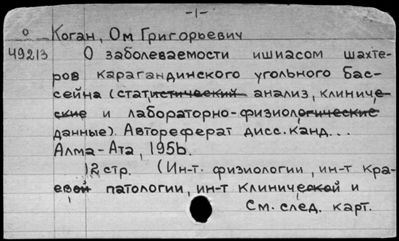 -1-
о Коган, Ом Григорьевич
49213 О заболеваемости ишиасом шахте-
ров карагандинского угольного бас-
сейна (статистический анализ, клиниче-
ские и лабораторно-физиологические
данные). Автореферат дисс. канд...
Алма-Ата, 1956.
12 стр. (Ин-т. физиологии, ин-т кра-
евой патологии, ин-т клинической и
См. след. карт.